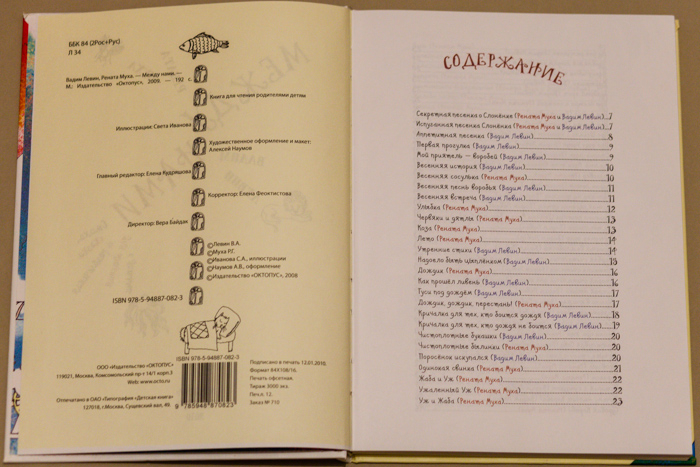 ББК 84 (2Рос+Рус)
Л 34
Вадим Левин, Рената Муха. — Между нами. —
М.: Издательство «Октопус», 2009. — 192 с.
Книга для чтения родителями детям
Иллюстрации: Света Иванова
Художественное оформление и макет:
Алексей Наумов
Главный редактор: Елена Кудряшова
Корректор: Елена Феоктистова
Директор: Вера Байдак
©Левин В.А.
©Муха Р.Г.
©Иванова С.А., иллюстрации
©Наумов А.В., оформление
©Издательство «ОКТОПУС», 2008
ISBN 978-5-94887-082-3
ISBN 978-5-94887-082-3
9 785948 870823
ООО «Издательство «ОКТОПУС»
119021, Москва, Комсомольский пр-т 14/1 корп.3
Web: www.octo.ru
Отпечатано в ОАО «Типография «Детская книга»
127018, г.Москва, Сущевский вал, 49.
Подписано в печать 12.01.2010.
Формат 84Х108/16.
Печать офсетная.
Тираж 3000 экз.
Печ.л. 12.
Заказ № 710
СОДЕРЖАНИЕ
Секретная песенка о Слонёнке (Рената Муха и Вадим Левин)...7
Испуганная песенка Слонёнка (Рената Муха и Вадим Левин)...7
Аппетитная песенка (Вадим Левин)...8
Первая прогулка (Вадим Левин)...9
Мой приятель — воробей (Вадим Левин)...9
Весенняя история (Вадим Левин)...10
Весенняя сосулька (Рената Муха)...10
Весенняя песнь воробья (Вадим Левин)...11
Весенняя встреча (Вадим Левин)...11
Улыбка (Рената Муха)...12
Червяки и дятлы (Рената Муха)...13
Коза (Рената Муха)...13
Лето (Рената Муха)...14
Утренние стихи (Вадим Левин)...14
Надоело быть цыплёнком (Вадим Левин)...15
Дождик (Рената Муха)...16
Как прошёл ливень (Вадим Левин)...16
Гуси под дождём (Вадим Левин)...17
Дождик, дождик, перестань! (Рената Муха)...17
Кричалка для тех, кто боится дождя (Вадим Левин)...18
Кричалка для тех, кто дождя не боится (Вадим Левин)...19
Чистоплотные букашки (Вадим Левин)...20
Чистоплотные былинки (Рената Муха)...20
Поросёнок искупался (Вадим Левин)...20
Одинокая свинка (Рената Муха)...21
Жаба и Уж (Рената Муха)...22
Ужаленный Уж (Рената Муха)...22
Уж и Жаба (Рената Муха)...23